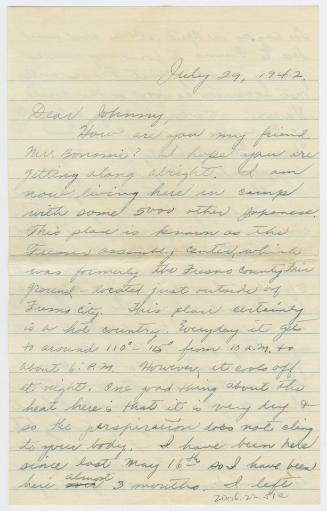 July 29, 1942.
Dear Johnny,
How are you my friend
Mr. Bonomi? I hope you are
getting along alright. I am
now living here in camp
with some 5000 other Japanese.
This place is known as the
Fresno assembly center, which
was formerly the Fresno County Fair
ground – located just outside of
Fresno City. This place certainly
is a hot country. Everyday it gets
to around 110° - 115° from 10 A.M. to
about 6: P.M. However, it cools off
at night. One good thing about the
heat here is that it is very dry &
so the perspiration does not cling
to your body. I have been here
since last May 16th so I have been
here almost 3 months. I left
2006.22.51a